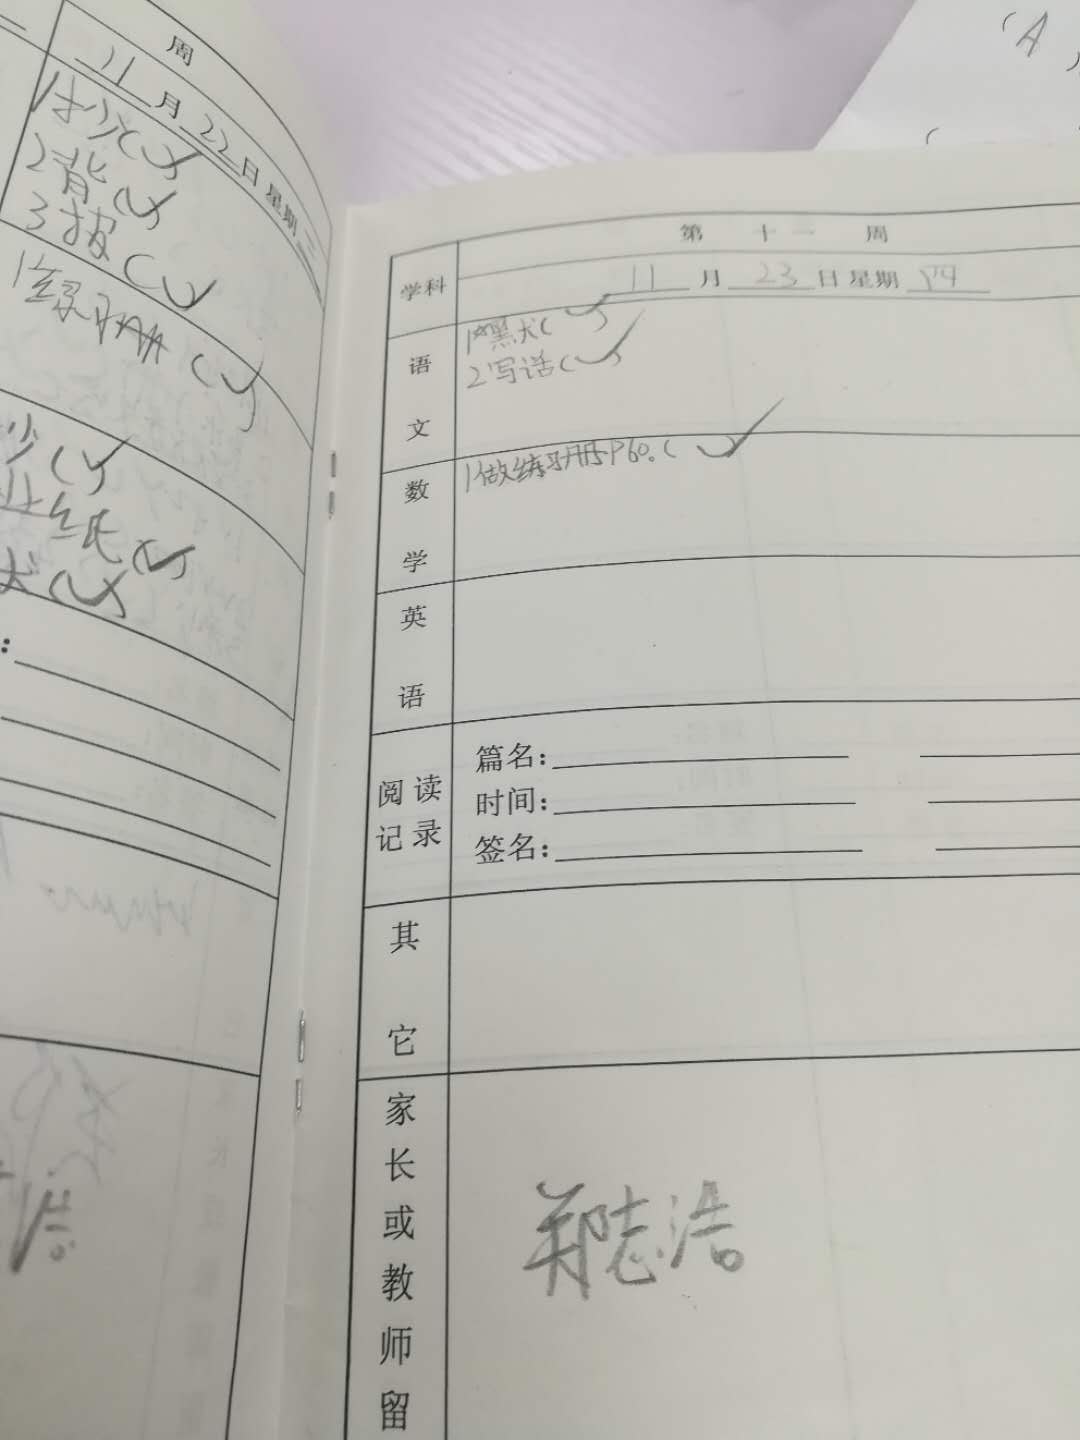 周
11月22日星期三
2背(✓)
3报(✓)
1练习册(✓)
少(✓)
(A
第十一周
学科
11月23日星期四
语文
1默状(✓)
2写话(✓)
数学
1做练习册P60。(✓)
英语
阅读记录
篇名:
时间:
签名:
其它
家长或教师留
郑志浩